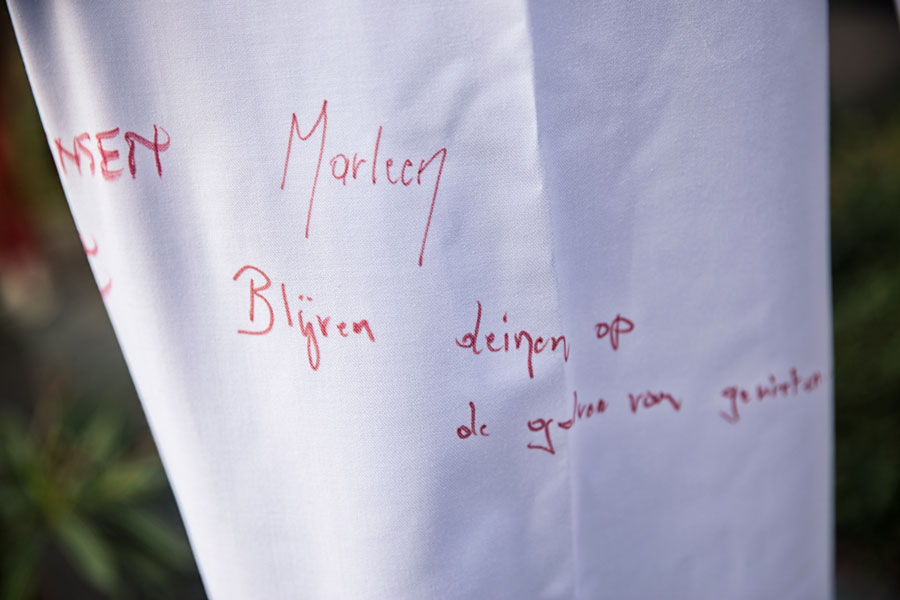 NSEN
Marleen
Blijven deinen op
de golven van genieten